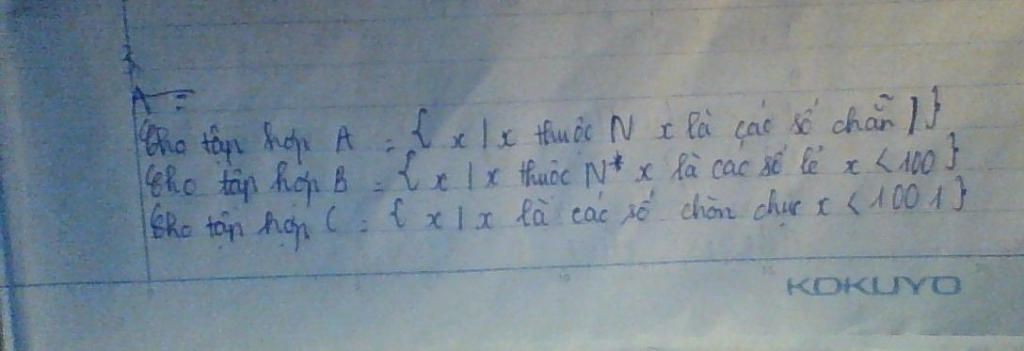 A =
Cho tập hợp A = { x | x thuộc N x là các số chẵn }
Cho tập hợp B = { x | x thuộc N* x là các số lẻ x < 100 }
Cho tập hợp C = { x | x là các số chòn chục x < 1001 }
KOKUYO